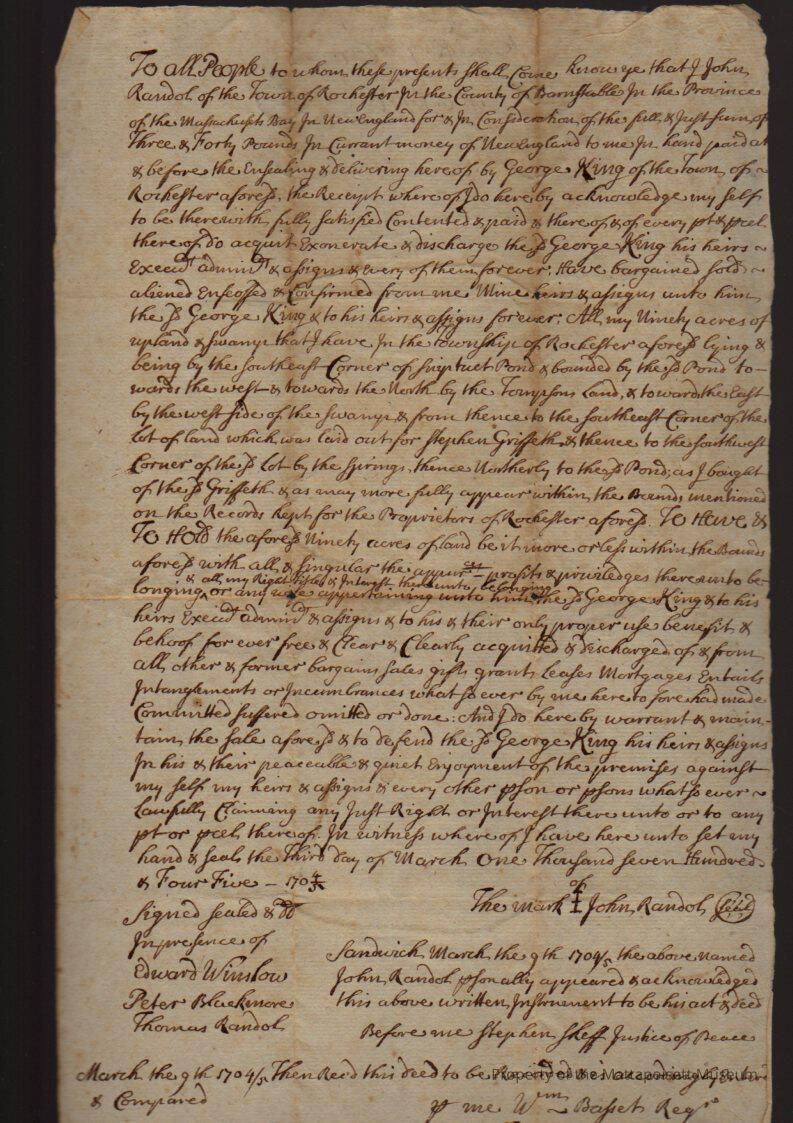 To all People to whom these presents shall Come know ye that I John
Randol of the Town of Rochester In the County of Barnstable In the Province
of the Massachusets Bay In New England for & In Consideration of the full & Just sum of
Three & Forty Pounds In Currant money of New England to me In hand paid at
& before the Ensealing & delivering hereof by George King of the Town of
Rochester aforesd, the Receipt whereof I do here by acknowledge my self
to be therewith fully satisfied Contented & paid & thereof & of every pt & pcel
there of do acquit Exonerate & discharge the sd George King his heirs
Execrs admrs & assigns & every of them forever; Have bargained sold
aliened Enfeoffed & Confirmed from me Mine heirs & assigns unto him
the sd George King & to his heirs & assigns for ever: All my Ninety acres of
upland & swamp that I have In the township of Rochester aforesd lying &
being by the southeast Corner of Sniptuet Pond & bounded by the sd Pond to-
wards the west & towards the North by the Tompsons Land, & toward the East
by the west side of the swamp & from thence to the southeast Corner of the
Lot of land which was laid out for Stephen Griffeth & thence to the southwest
Corner of the sd Lot by the springs, thence Northerly to the sd Pond; as I bought
of the sd Griffeth & as may more fully appear within the Bounds mentioned
on the Records kept for the Proprietors of Rochester aforesd. To Have &
To Hold the aforesd Ninety acres of land be it more or less within the Bounds
aforesd with all & singular the appurces profits & priviledges there unto be-
& all my Right Titles & Interest thereunto belonging
longing, or any wise appertaining unto him the sd George King & to his
heirs Execrs admrs & assigns & to his & their only proper use benefit &
behoof for ever free & Clear & Clearly acquitted & discharged of & from
all other & former bargains sales gifts grants Leases Mortgages Entails
Intanglements or Incumbrances what so ever by me here to fore had made
Committed suffered omitted or done: And I do here by warrant & main-
tain the sale aforesd & to defend the sd George King his heirs & assigns
In his & their peaceable & quiet Enjoyment of the premises against
my self my heirs & assigns & every other pson or psons what so ever
Lawfully Claiming any Just Right or Interest there unto or to any
pt or pcel thereof. In witness where of I have here unto set my
hand & seal the Third day of March One Thousand seven Hundred
& Four Five - 1704/5
The mark of I John Randol (seal)
Signed sealed & dd
In presence of
Edward Winslow
Peter Blackmore
Thomas Randol
Sandwich March the 9th 1704/5 the above named
John Randol psonally appeared & acknowledged
this above written Instrument to be his act & deed
Before me Stephen Skeff Justice of Peace
March the 9th 1704/5 Then Recd this deed to be
& Compared
Property of the Mattapoisett Museum
p me Wm Basset Regr